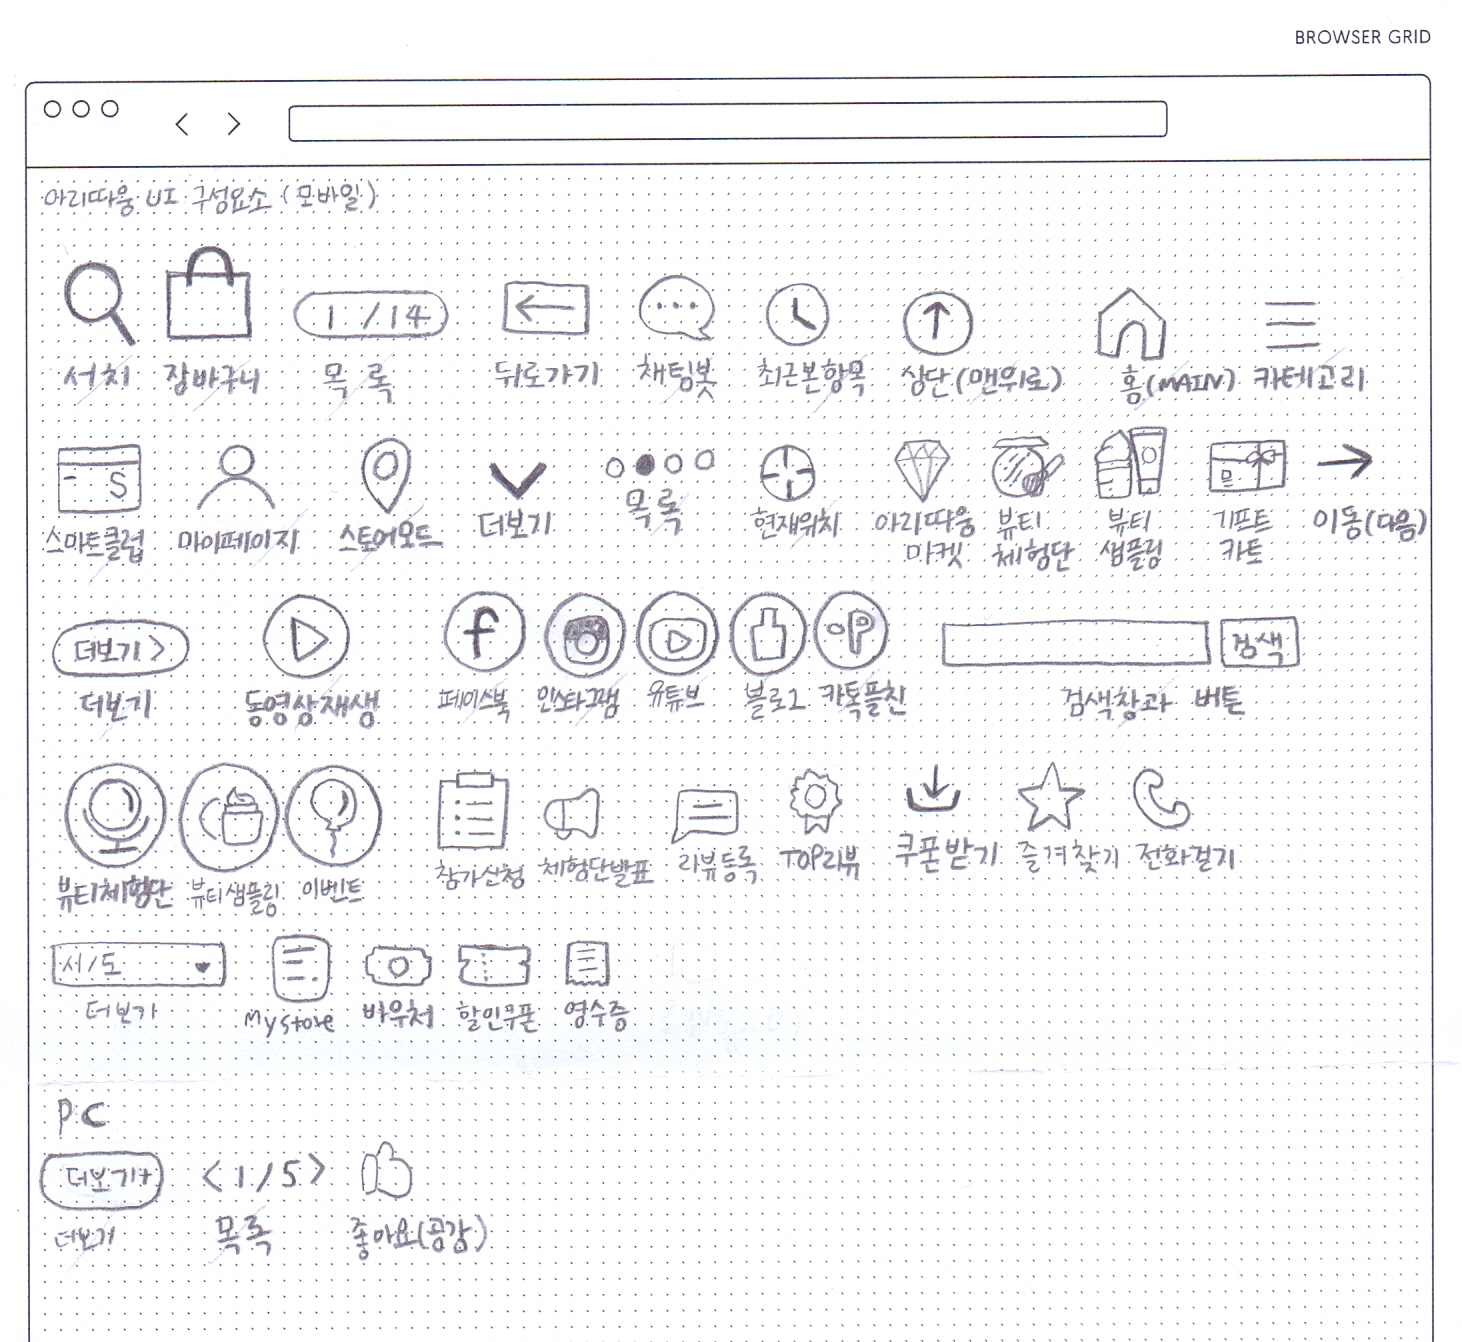 BROWSER GRID
아리따움 UI 구성요소 (모바일)
1 / 14
서치 장바구니 목록 뒤로가기 채팅봇 최근본항목 상단(맨위로) 홈(MAIN) 카테고리
S
스마트클럽 마이페이지 스토어모드 더보기 목록 현재위치 아리따움 마켓 뷰티 체험단 뷰티 샘플링 기프트 카드 이동(다음)
더보기 > f P 검색
더보기 동영상재생 페이스북 인스타그램 유튜브 블로그 카톡플친 검색창과 버튼
뷰티체험단 뷰티샘플링 이벤트 참가신청 체험단발표 리뷰등록 TOP리뷰 쿠폰받기 즐겨찾기 전화걸기
시/도
더보기 My store 바우처 할인쿠폰 영수증
PC
더보기+ < 1 / 5 >
더보기 목록 좋아요(공감)